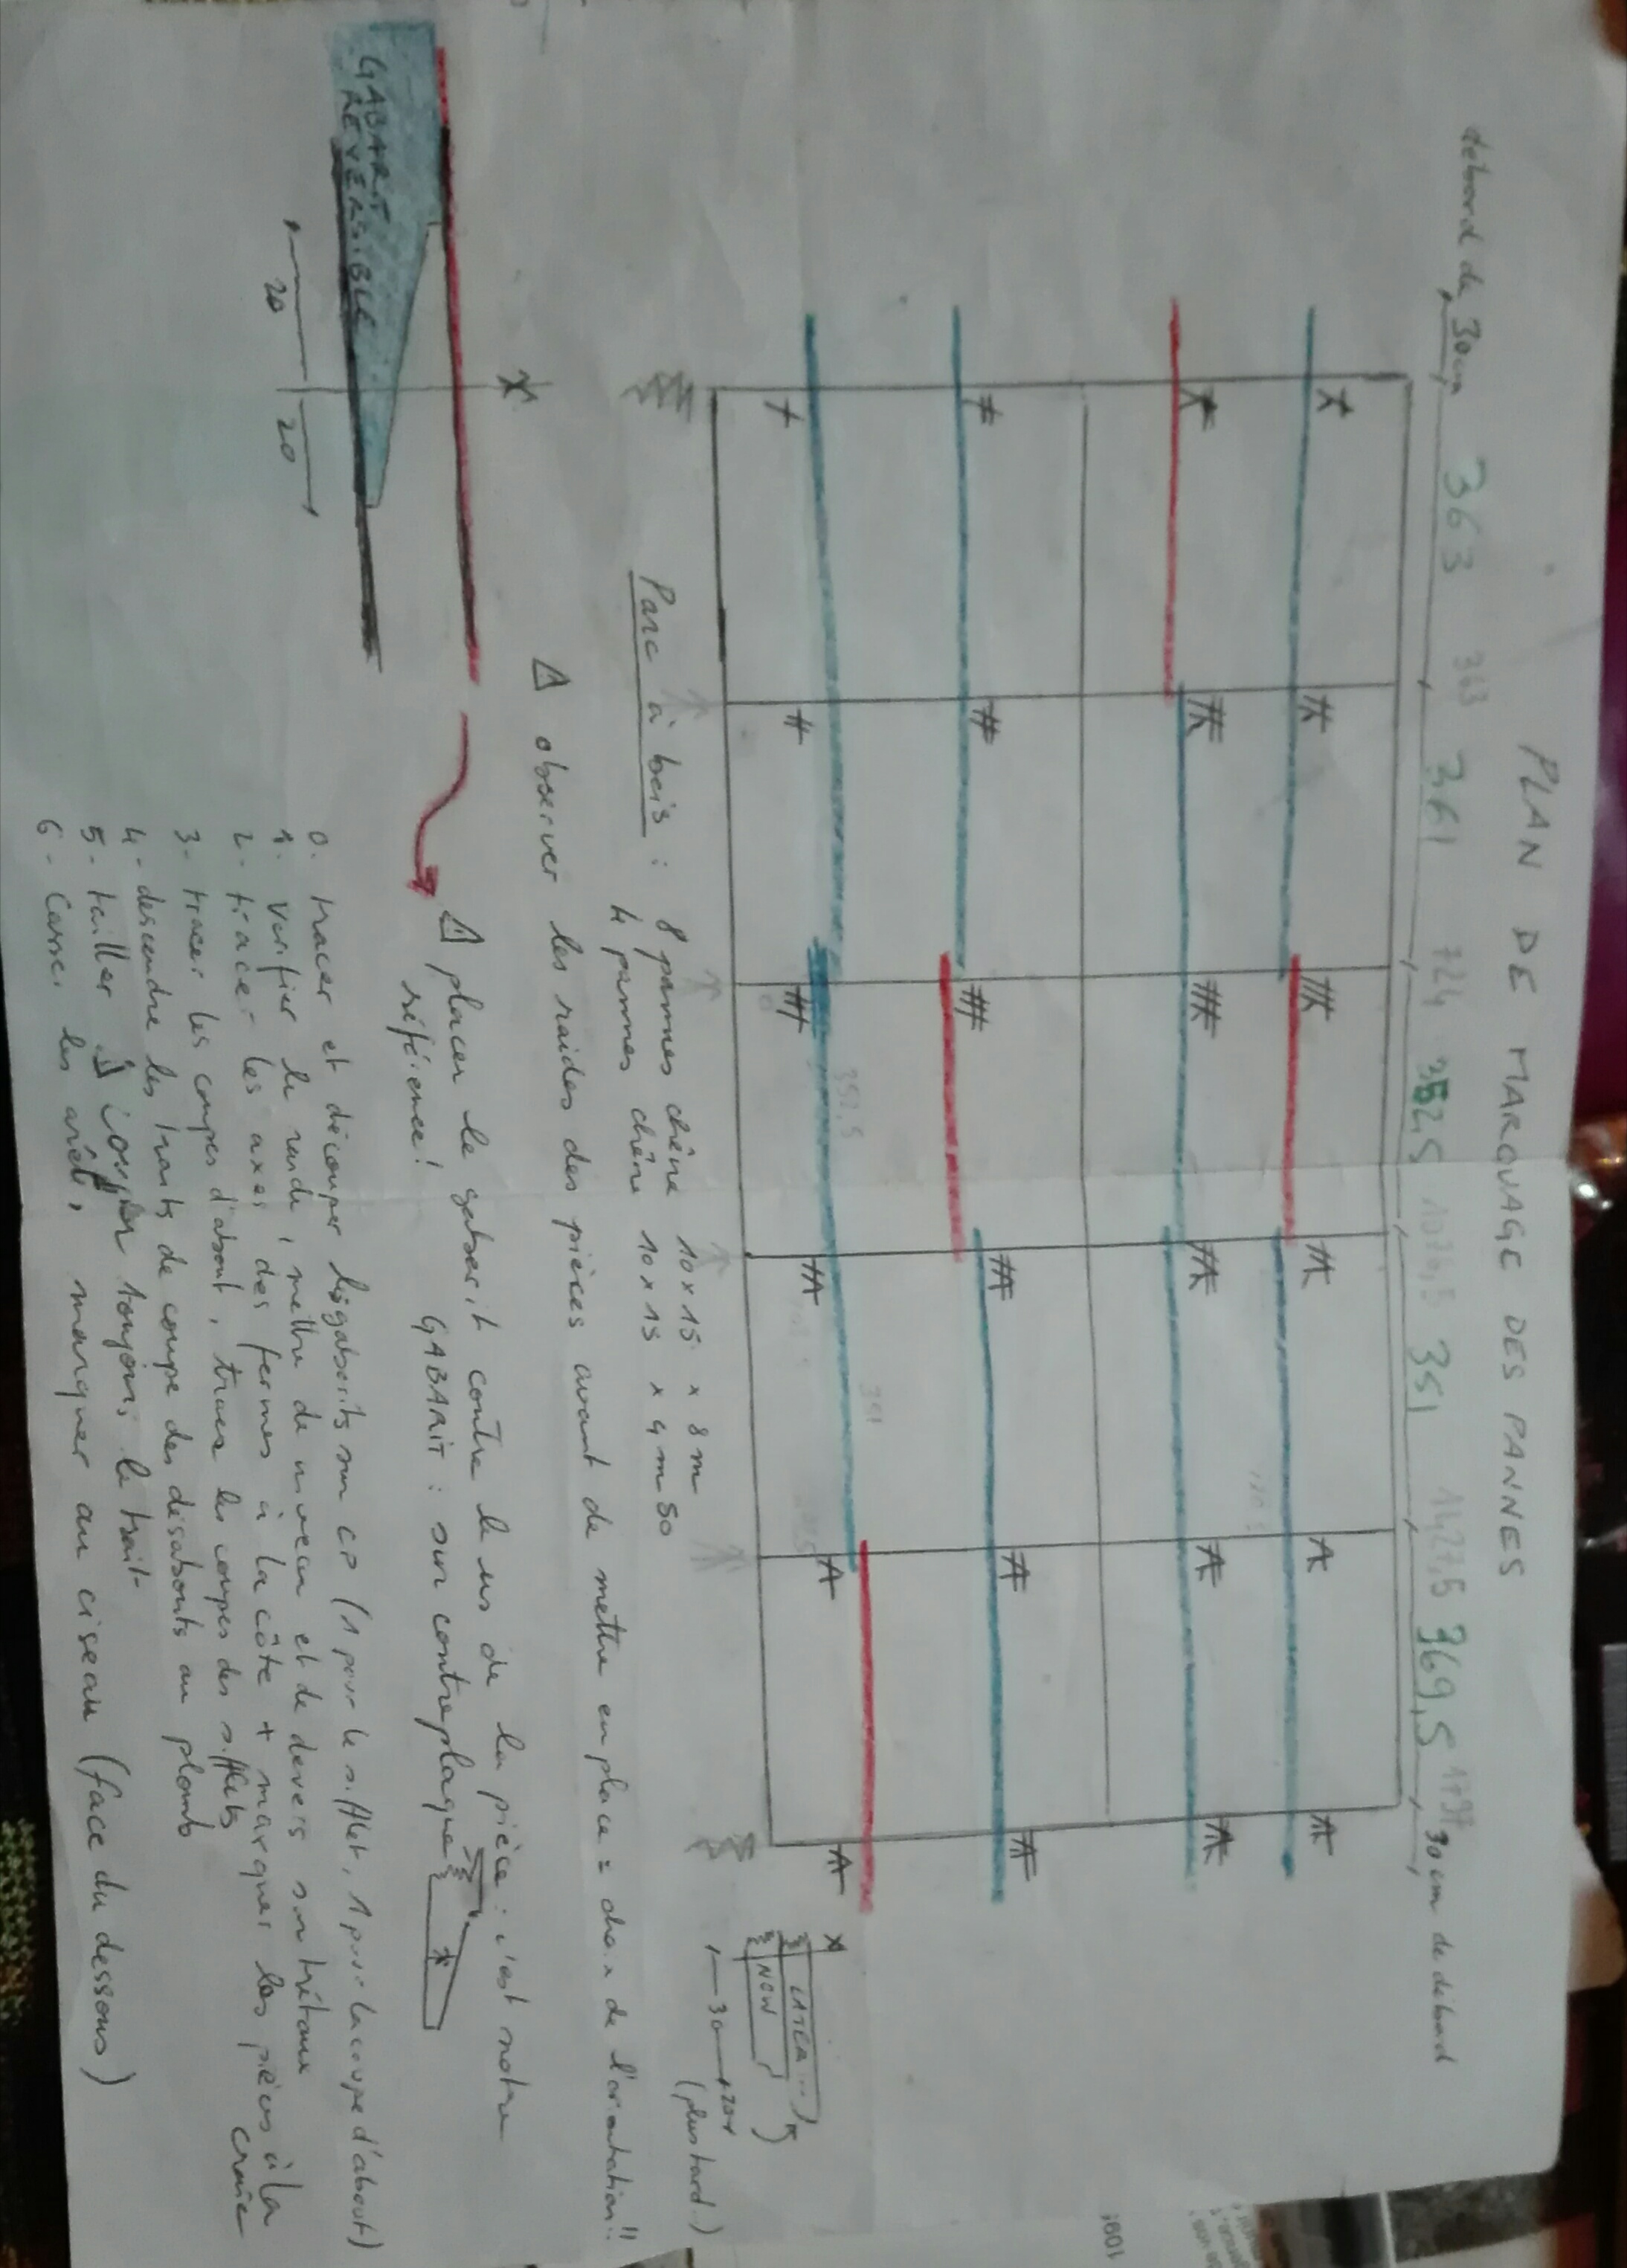 PLAN DE MARQUAGE DES PANNES
débord de 30cm 363 363 361 724 352,5 1076,5 351 1427,5 369,5 1797 30 cm de débord
352,5
351
LATER...
NOW
30
(plus tard..)
Parc à bois : 8 pannes chêne 10 x 15 x 8 m
4 pannes chêne 10 x 15 x 4 m 50
⚠ observer les raides des pièces avant de mettre en place = choix de l'orientation!!
⚠ placer le gabarit contre le us de la pièce : c'est notre
référence!
GABARIT : sur contreplaqué
GABARIT
REVERSIBLE
20 20
0. tracer et découper les gabarits sur CP (1 pour le sifflet, 1 pour la coupe d'about)
1. vérifier le raide, mettre de niveau et de devers sur tréteaux
2- tracer les axes des fermes à la côte + marquer les pièces à la craie
3- tracer les coupes d'about, tracer les coupes des sifflets
4- descendre les traits de coupe des désabouts au plomb
5- tailler ⚠ couper toujours le trait
6- Casser les arêtes, marquer au ciseau (face du dessous)